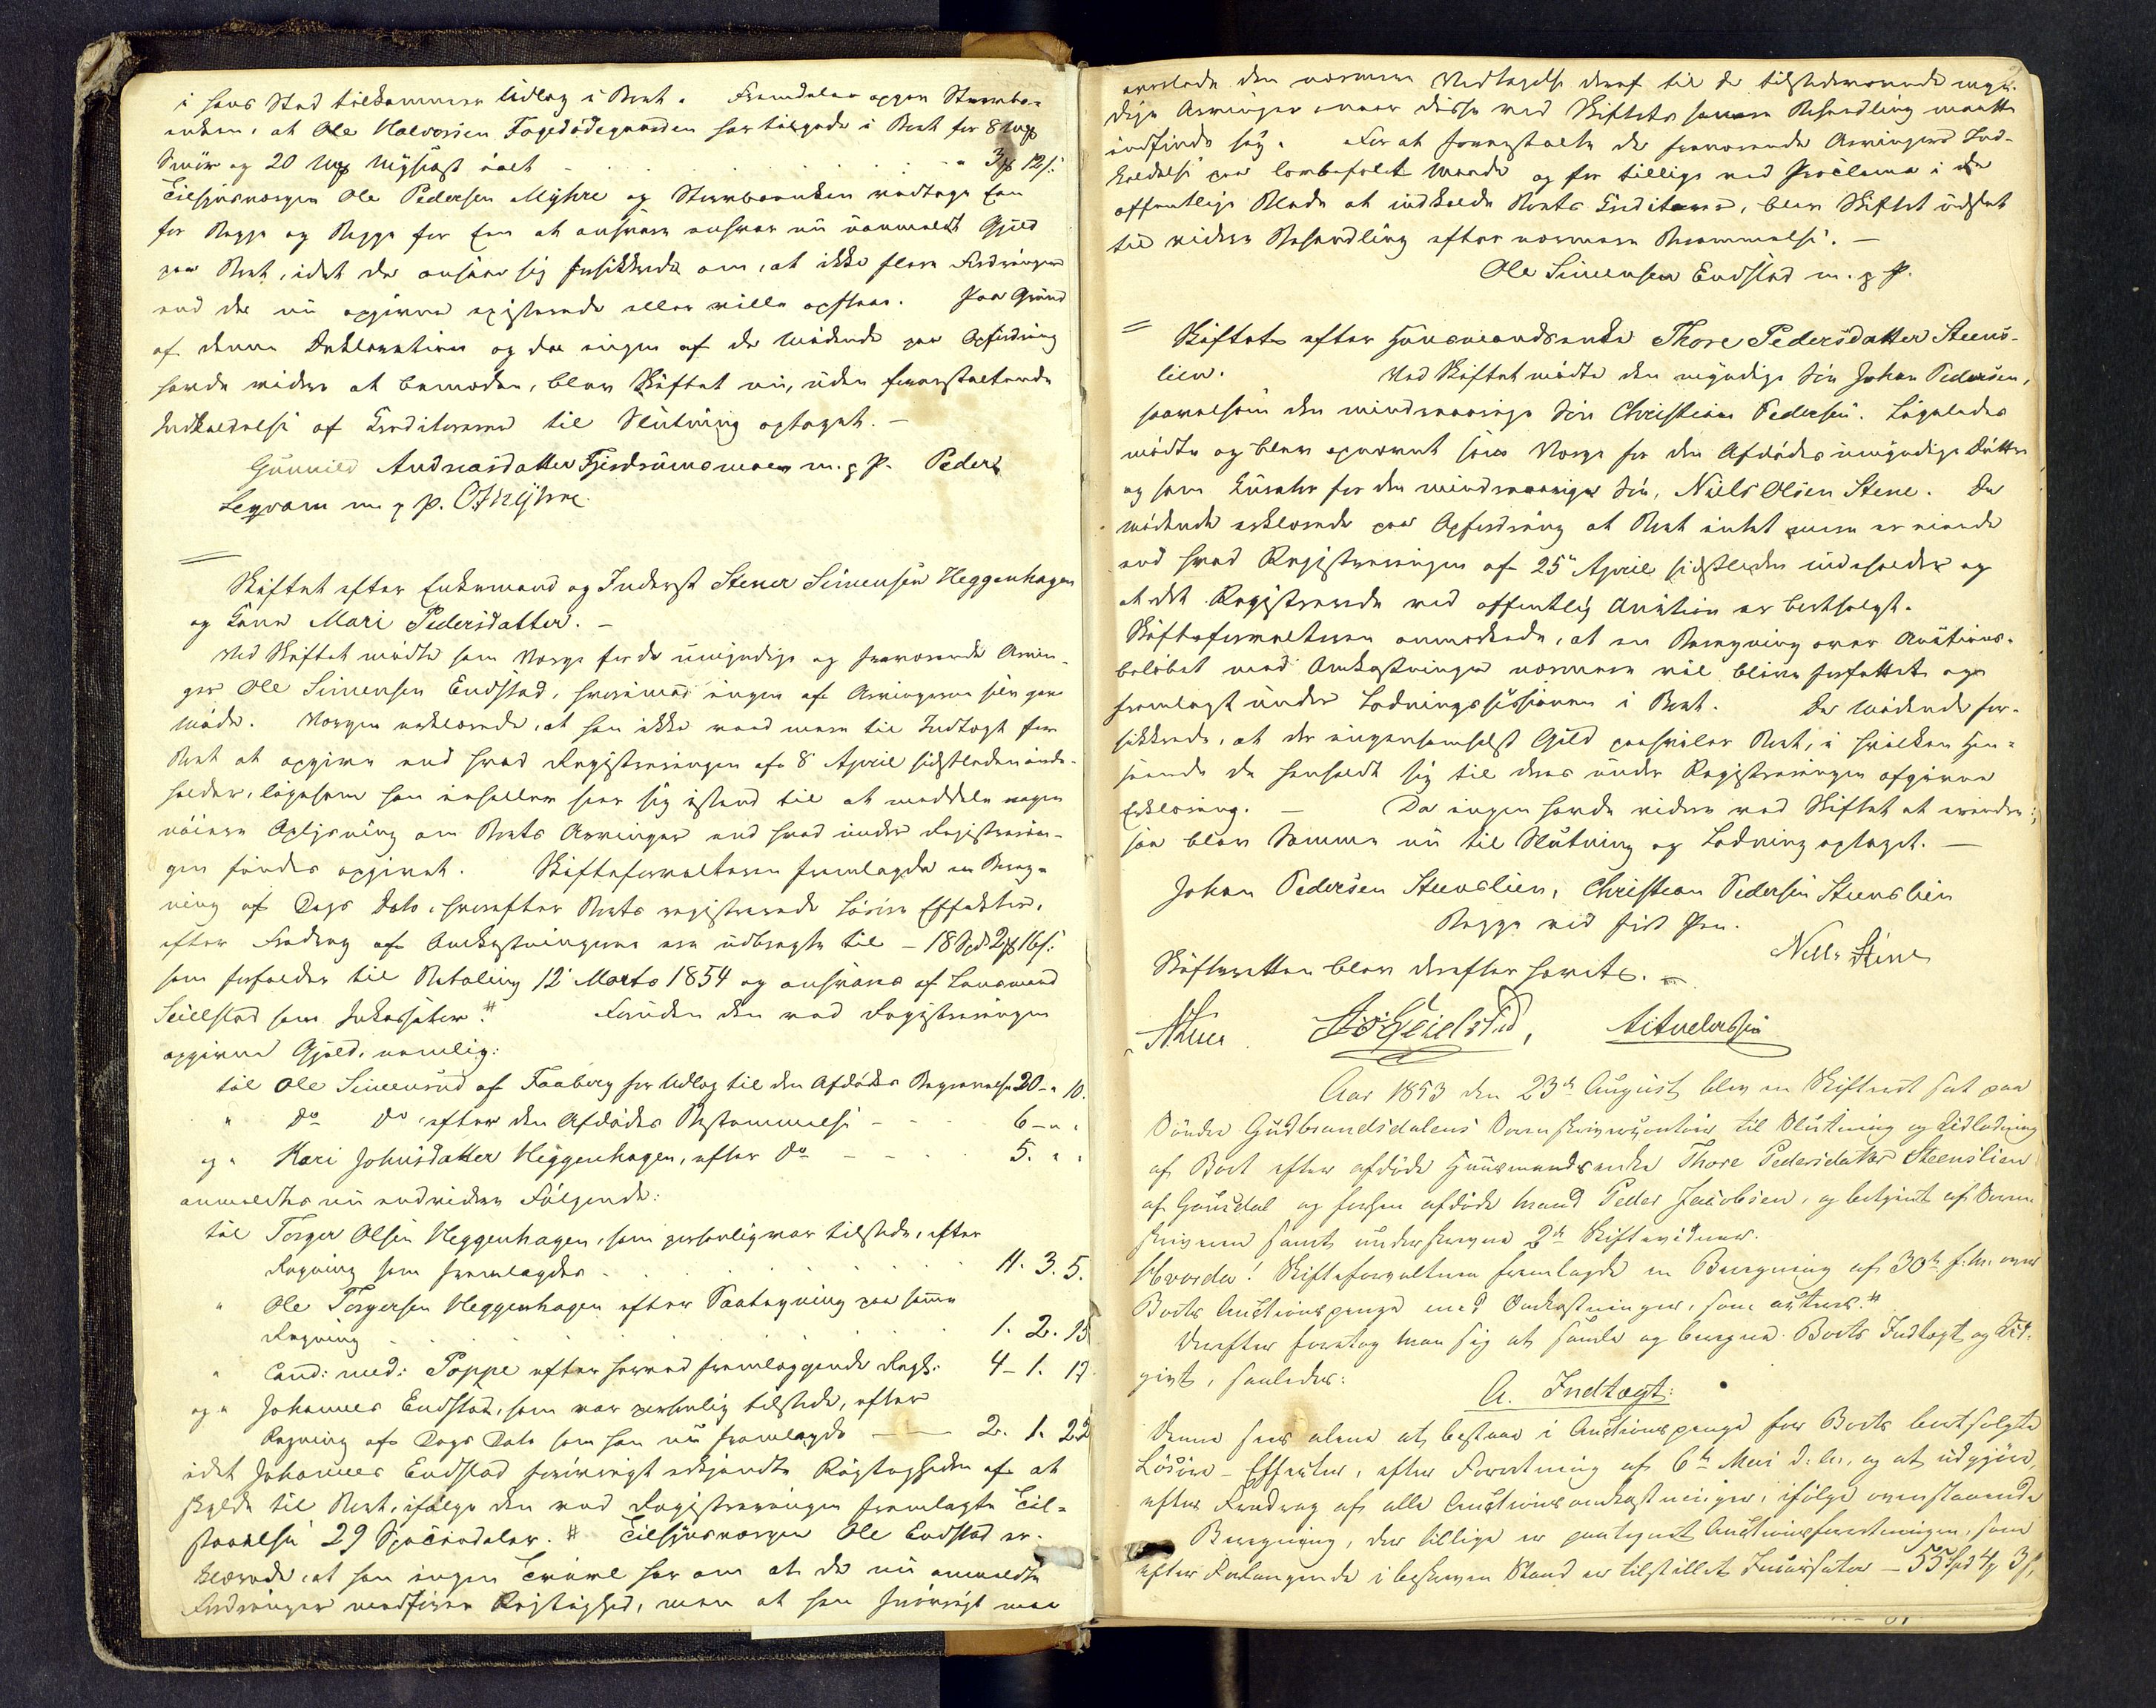 i hans Sted tilkommer Udlæg i Boet. Fremdeles opgav Stervbo-
enken, at Ole Halvorsen Fogedødegaarden har tilgode i Boet for 8 Mk
Smør og 20 Mk Mysost ialt - . . . . . - 3 # 12 s:
Tilsynsværgen Ole Pedersen Myhre og Stervboenken vedtoge Een
for Begge og Begge for Een at ansvare enhver nu anmeldt Gjæld
paa Boet, idet de ansaae sig forsikkrede om, at ikke flere Fordringer
end de nu opgivne existerede eller ville opstaae. Paa Grund
af denne Deklaration og da ingen af de Mødende paa Opfordring
havde videre at bemærke, blev Skiftet nu, uden foranstaltende
Indkaldelse af Creditorerne til Slutning optaget. -
Gunnild Andreasdatter Fjerdrumsmoen m. p. P. Peder
Segvam m. p. P. O. Myhre.
Skiftet efter Enkemand og Inderst Stener Simensen Heggenhagen
og Kone Mari Pedersdatter. -
Ved Skiftet mødte som Værge for de umyndige og fraværende Arvin-
ger Ole Simensen Endstad, hvorimod ingen af Arvingerne selv gav
Møde. Værgen erklærede, at han ikke veed mere til Indtægt for
Boet at opgive end hvad Registreringen af 8 April sidstleden inde-
holder, ligesom han ei heller seer sig istand til at meddele nogen
nøiere Oplysning om Boets Arvinger end hvad under Registrerin-
gen findes opgivet. Skifteforvalteren fremlagde en Bereg-
ning af Dags Dato, hvorefter Boets registrerede Løsøre Effekter,
efter Fradrag af Omkostningerne ere udbragte til - 18 Spd 2 # 16 s:
som forfalder til Betaling 12 Marts 1854 og ansvares af Lensmand
Seielstad som Inkassator. # Foruden den ved Registreringen
opgivne Gjæld, nemlig:
til Ole Simensen af Faaberg for Udlæg til den Afdødes Begravelse 20 - " 10.
" Do Do efter den Afdødes Bestemmelse - - 6 - " "
og " Kari Johnsdatter Heggenhagen, efter Do - - - 5. " "
anmeldtes nu endvidere Følgende:
til Torger Olsen Heggenhagen, som personlig var tilstede, efter
Regning som fremlagdes . . . . . 11. 3. 5.
" Ole Torgersen Heggenhagen efter Paategning paa samme
Regning . . . . . 1. 2. 15
" Cand: med: Poppe efter herved fremlæggende Regn: 4 - 1. 17.
og " Johannes Endstad, som var personlig tilstede, efter
Regning af Dags Dato som han nu fremlagde - - 2. 1. 22
idet Johannes Endstad forøvrigt erkjendte Rigtigheden af at
skylde til Boet, ifølge den ved Registreringen fremlagte Til-
staaelse 29 Speciedaler. # Tilsynsværgen Ole Endstad er-
klærede, at han ingen Tvivl har om at de nu anmeldte
Fordringer medføre Rigtighed, men at han forøvrigt maa
overlade den nærmere Vedtagelse deraf til de tilstedeværende myn-
dige Arvinger naar disse ved Skiftets senere Behandling maatte
indfinde sig. For at foranstalte de fraværende Arvingers Ind-
kaldelse paa lovbefalet Maade og for tillige ved Proclama i de
offentlige Blade at indkalde Boets Creditorer, blev Skiftet udsat
til videre Behandling efter nærmere Berammelse. -
Ole Simensen Endstad m. p. P.
Skiftet efter Huusmandsenke Thore Pedersdatter Steens-
lien. Ved Skiftet mødte den myndige Søn Johan Pedersen,
saavelsom den mindreaarige Søn Christian Pedersen. Ligeledes
mødte og blev opnævnt som Værge for den Afdødes umyndige Datter
og som Curator for den mindreaarige Søn, Niels Olsen Stene. De
Mødende erklærede paa Opfordring at Boet intet mere er eiende
end hvad Registreringen af 25 April sidstleden indeholder og
at det Registrerede ved offentlig Auction er bortsolgt.
Skifteforvalteren anmærkede, at en Beregning over Auctions-
beløbet med Omkostninger nærmere vil blive forfattet og
fremlagt under Lodningssessionen i Boet. De Mødende for-
sikkrede, at der ingensomhelst Gjæld paahviler Boet, i hvilken Hen-
seende de henholdt sig til deres under Registreringen afgivne
Erklæring. - Da ingen havde videre ved Skiftet at erindre,
saa blev Samme nu til Slutning og Lodning optaget. -
Johan Pedersen Steenslien, Christian Pedersen Steenslien
Begge med ført Pen.
Skifteretten blev derefter hævet. - Nells Stene
Aar 1853 den 23de August blev en Skifteret sat paa
Søndre Gudbrandsdalens Sorenskrivercontoir til Slutning og Udlodning
af Boet efter afdøde Huusmandsenke Thore Pedersdatter Steenslien
af Gausdal og forhen afdøde Mand Peder Jacobsen, og betjent af Soren-
skriveren samt underskrevne 2de Skiftevidner.
Hvorda! Skifteforvalteren fremlagde en Beregning af 30te f. M. over
Boets Auctionspenge med Omkostninger, som acteres. #
Derefter foretog man sig at samle og beregne Boets Indtægt og Ud-
givt, saaledes:
A. Indtægt:
Denne sees alene at bestaae i Auctionspenge for Boets bortsolgte
Løsøre-Effecter, efter Forretning af 6te Mai d. A., og at udgjøre,
efter Fradrag af alle Auctionsomkostninger, ifølge ovenstaaende
Beregning, der tillige er paategnet Auctionsforretningen, som
efter Forlangende i beskreven Stand er tilstillet Incassator - 55 Spd 4 # 3 s,